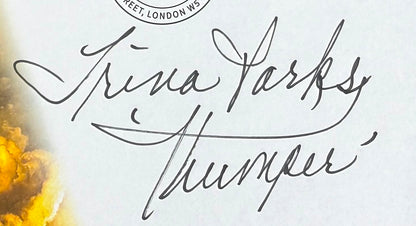 REET, LONDON W5
Trina Parks
'Thumper'